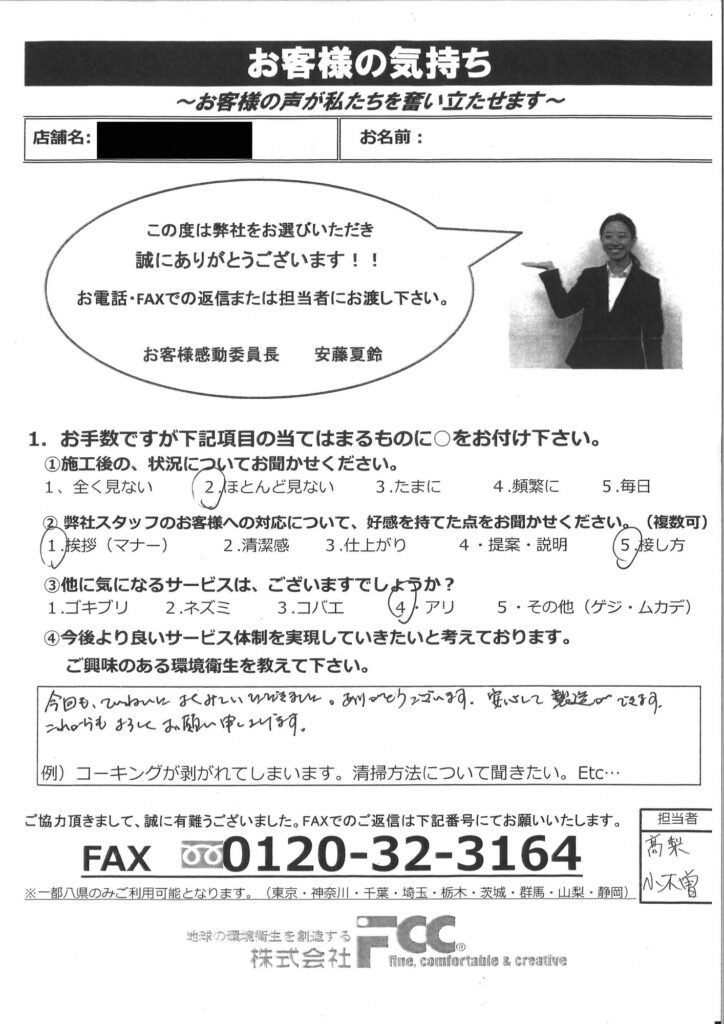 お客様の気持ち
～お客様の声が私たちを奮い立たせます～
店舗名:
お名前：
この度は弊社をお選びいただき
誠にありがとうございます！！
お電話・FAXでの返信または担当者にお渡し下さい。
お客様感動委員長　安藤夏鈴
1．お手数ですが下記項目の当てはまるものに○をお付け下さい。
①施工後の、状況についてお聞かせください。
1、全く見ない　2.ほとんど見ない　3.たまに　4.頻繁に　5.毎日
② 弊社スタッフのお客様への対応について、好感を持てた点をお聞かせください。（複数可）
1.挨拶（マナー）　2.清潔感　3.仕上がり　4・提案・説明　5.接し方
③他に気になるサービスは、ございますでしょうか？
1.ゴキブリ　2.ネズミ　3.コバエ　4・アリ　5・その他（ゲジ・ムカデ）
④今後より良いサービス体制を実現していきたいと考えております。
ご興味のある環境衛生を教えて下さい。
今回も、ていねいに いただきました。ありがとうございます。安心して製造ができます。
これからもよろしくお願い申し上げます。
例）コーキングが剥がれてしまいます。清掃方法について聞きたい。Etc…
ご協力頂きまして、誠に有難うございました。FAXでのご返信は下記番号にてお願いいたします。
FAX 0120-32-3164
※一都八県のみご利用可能となります。（東京・神奈川・千葉・埼玉・栃木・茨城・群馬・山梨・静岡）
担当者
高梨
小木曽
地球の環境衛生を創造する
株式会社 FCC®
fine, comfortable & creative